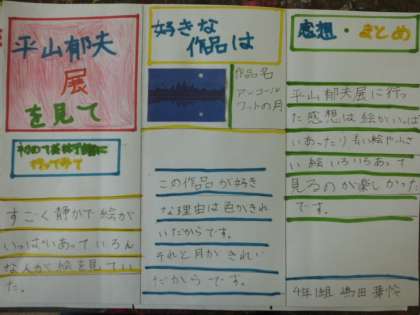 平山郁夫
展
を見て
初めて美術館に
行ってみて
すごく静かで絵が
いっぱいあっていろん
な人がて絵を見てい
た。
好きな
作品は
作品名
アンコール
ワットの月
この作品が好き
な理由は色がきれ
いだからです。
それと月がきれい
だからです。
感想・まとめ
平山郁夫展に行っ
た感想は絵がいっぱ
いあったり長い絵や小さ
い絵いろいろあって
見るのが楽しかった
です。
4年1組 嶋田